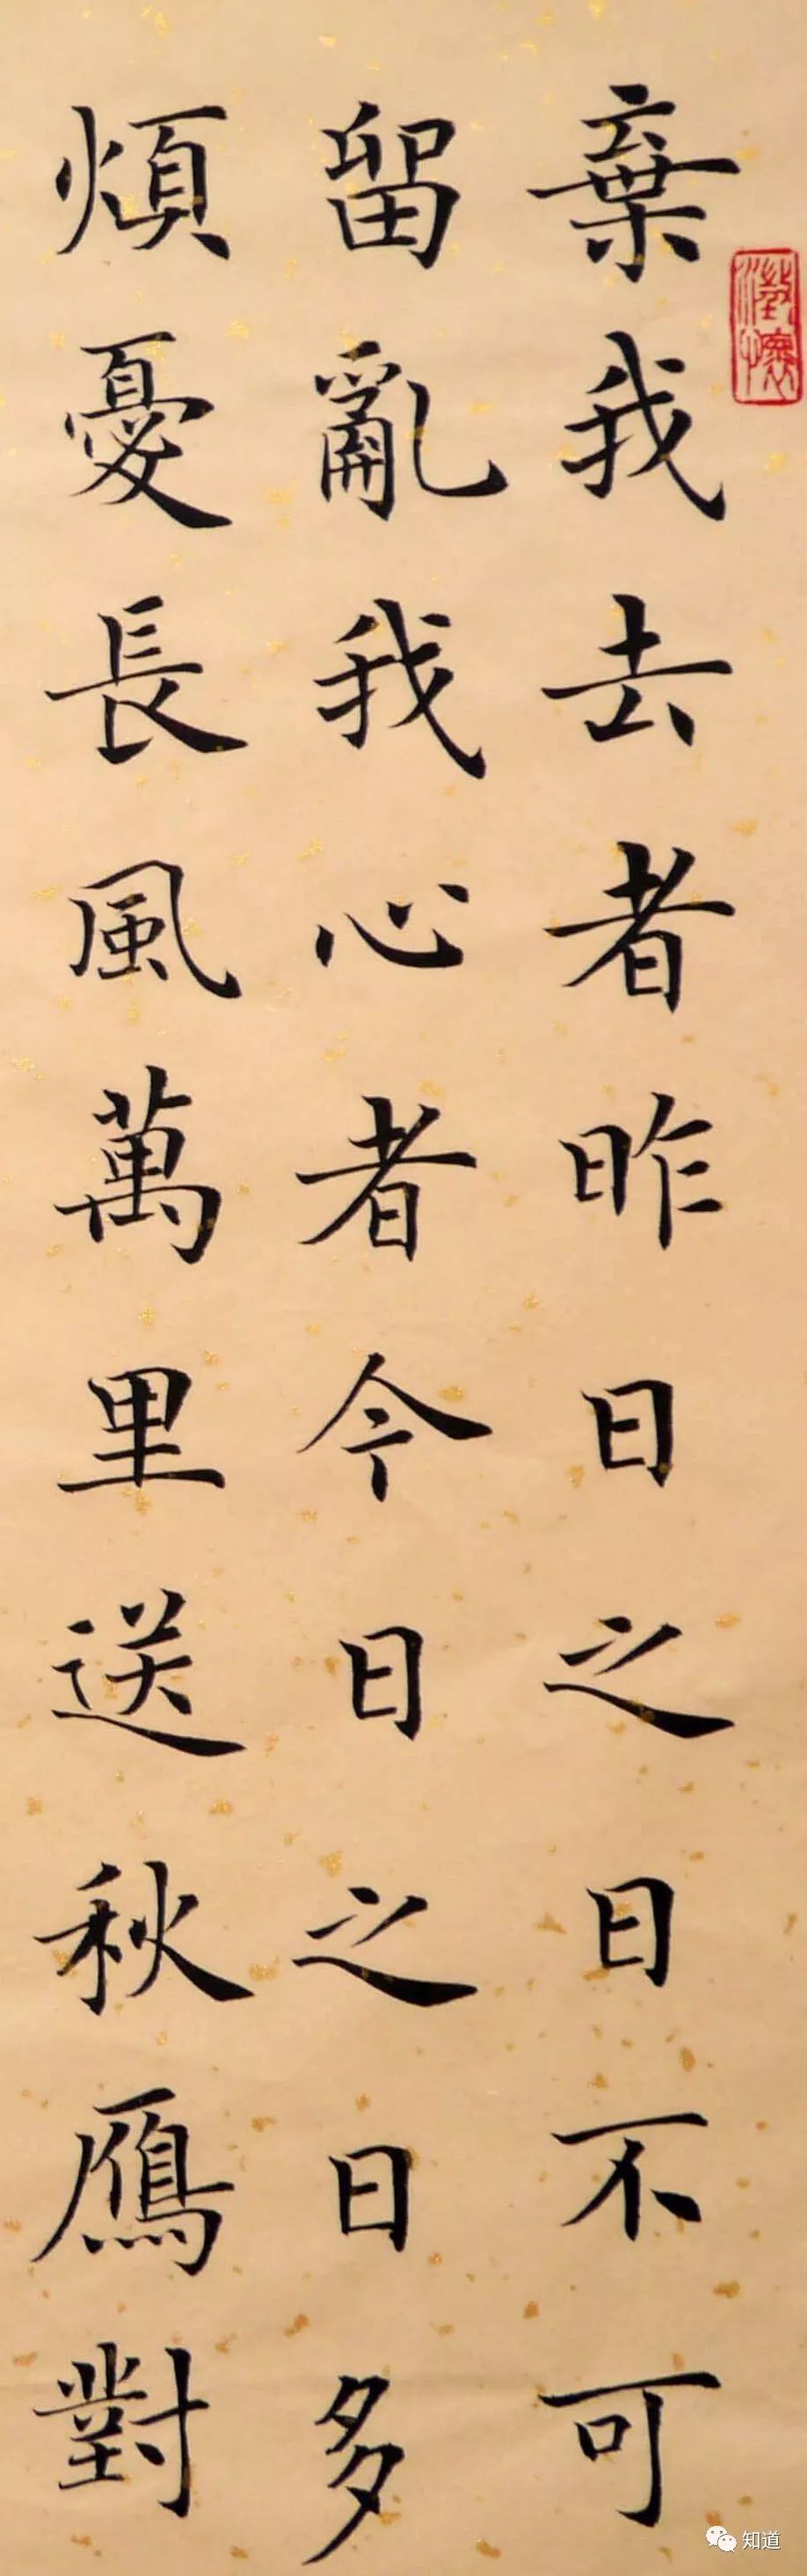 棄我去者昨日之日不可
留亂我心者今日之日多
煩憂長風萬里送秋鴈對
澂懷
知道